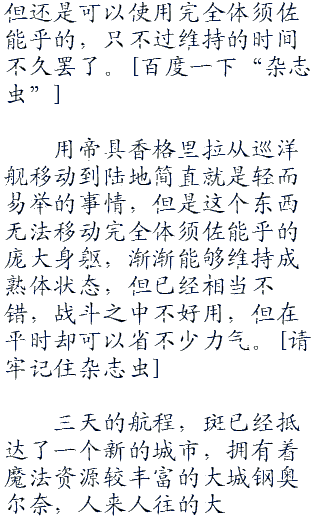 但还是可以使用完全体须佐
能乎的，只不过维持的时间
不久罢了。[百度一下“杂志
虫”]
用帝具香格里拉从巡洋
舰移动到陆地简直就是轻而
易举的事情，但是这个东西
无法移动完全体须佐能乎的
庞大身躯，渐渐能够维持成
熟体状态，但已经相当不
错，战斗之中不好用，但在
平时却可以省不少力气。[请
牢记住杂志虫]
三天的航程，斑已经抵
达了一个新的城市，拥有着
魔法资源较丰富的大城钢奥
尔奈，人来人往的大